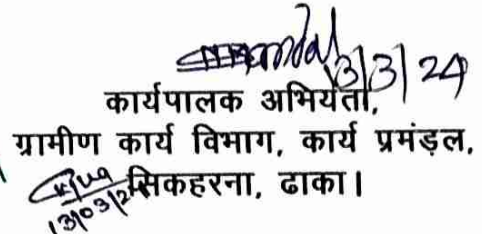 13/3/24
कार्यपालक अभियंता,
ग्रामीण कार्य विभाग, कार्य प्रमंड़ल,
सिकहरना, ढाका।
13/03/2